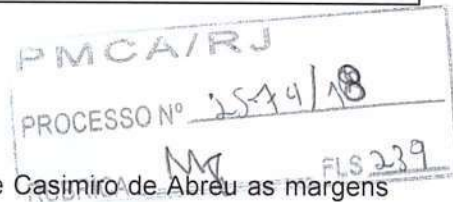 PMCA/RJ
PROCESSO Nº 2574/18
RUBRICA FLS 239
e Casimiro de Abreu as margens